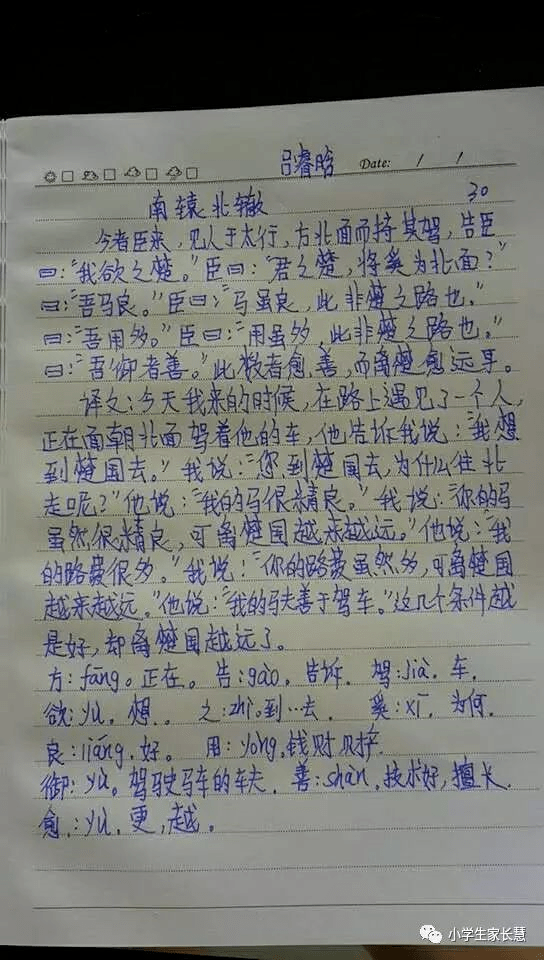 吕睿晗 Date: / /
南辕北辙 30
今者臣来,见人于太行,方北面而持其驾,告臣
曰:“我欲之楚。”臣曰:“君之楚,将奚为北面?”
曰:“吾马良。”臣曰:“马虽良,此非楚之路也。”
曰:“吾用多。”臣曰:“用虽多,此非楚之路也。”
曰:“吾御者善。”此数者愈善,而离楚愈远耳。
译文:今天我来的时候,在路上遇见了一个人,
正在面朝北面驾着他的车,他告诉我说:“我想
到楚国去。”我说:“您到楚国去,为什么往北
走呢?”他说:“我的马很精良。”我说:“你的马
虽然很精良,可离楚国越来越远。”他说:“我
的路费很多。”我说:“你的路费虽然多,可离楚国
越来越远。”他说:“我的马夫善于驾车。”这几个条件越
是好,却离楚国越远了。
方:fāng。正在。告:gào。告诉。驾:jià。车。
欲:yù。想。之:zhī。到…去。奚:xī。为何。
良:liáng。好。用:yòng。钱财。财产。
御:yù。驾驶马车的车夫。善:shàn,技术好,擅长。
愈:yù。更,越。
小学生家长慧